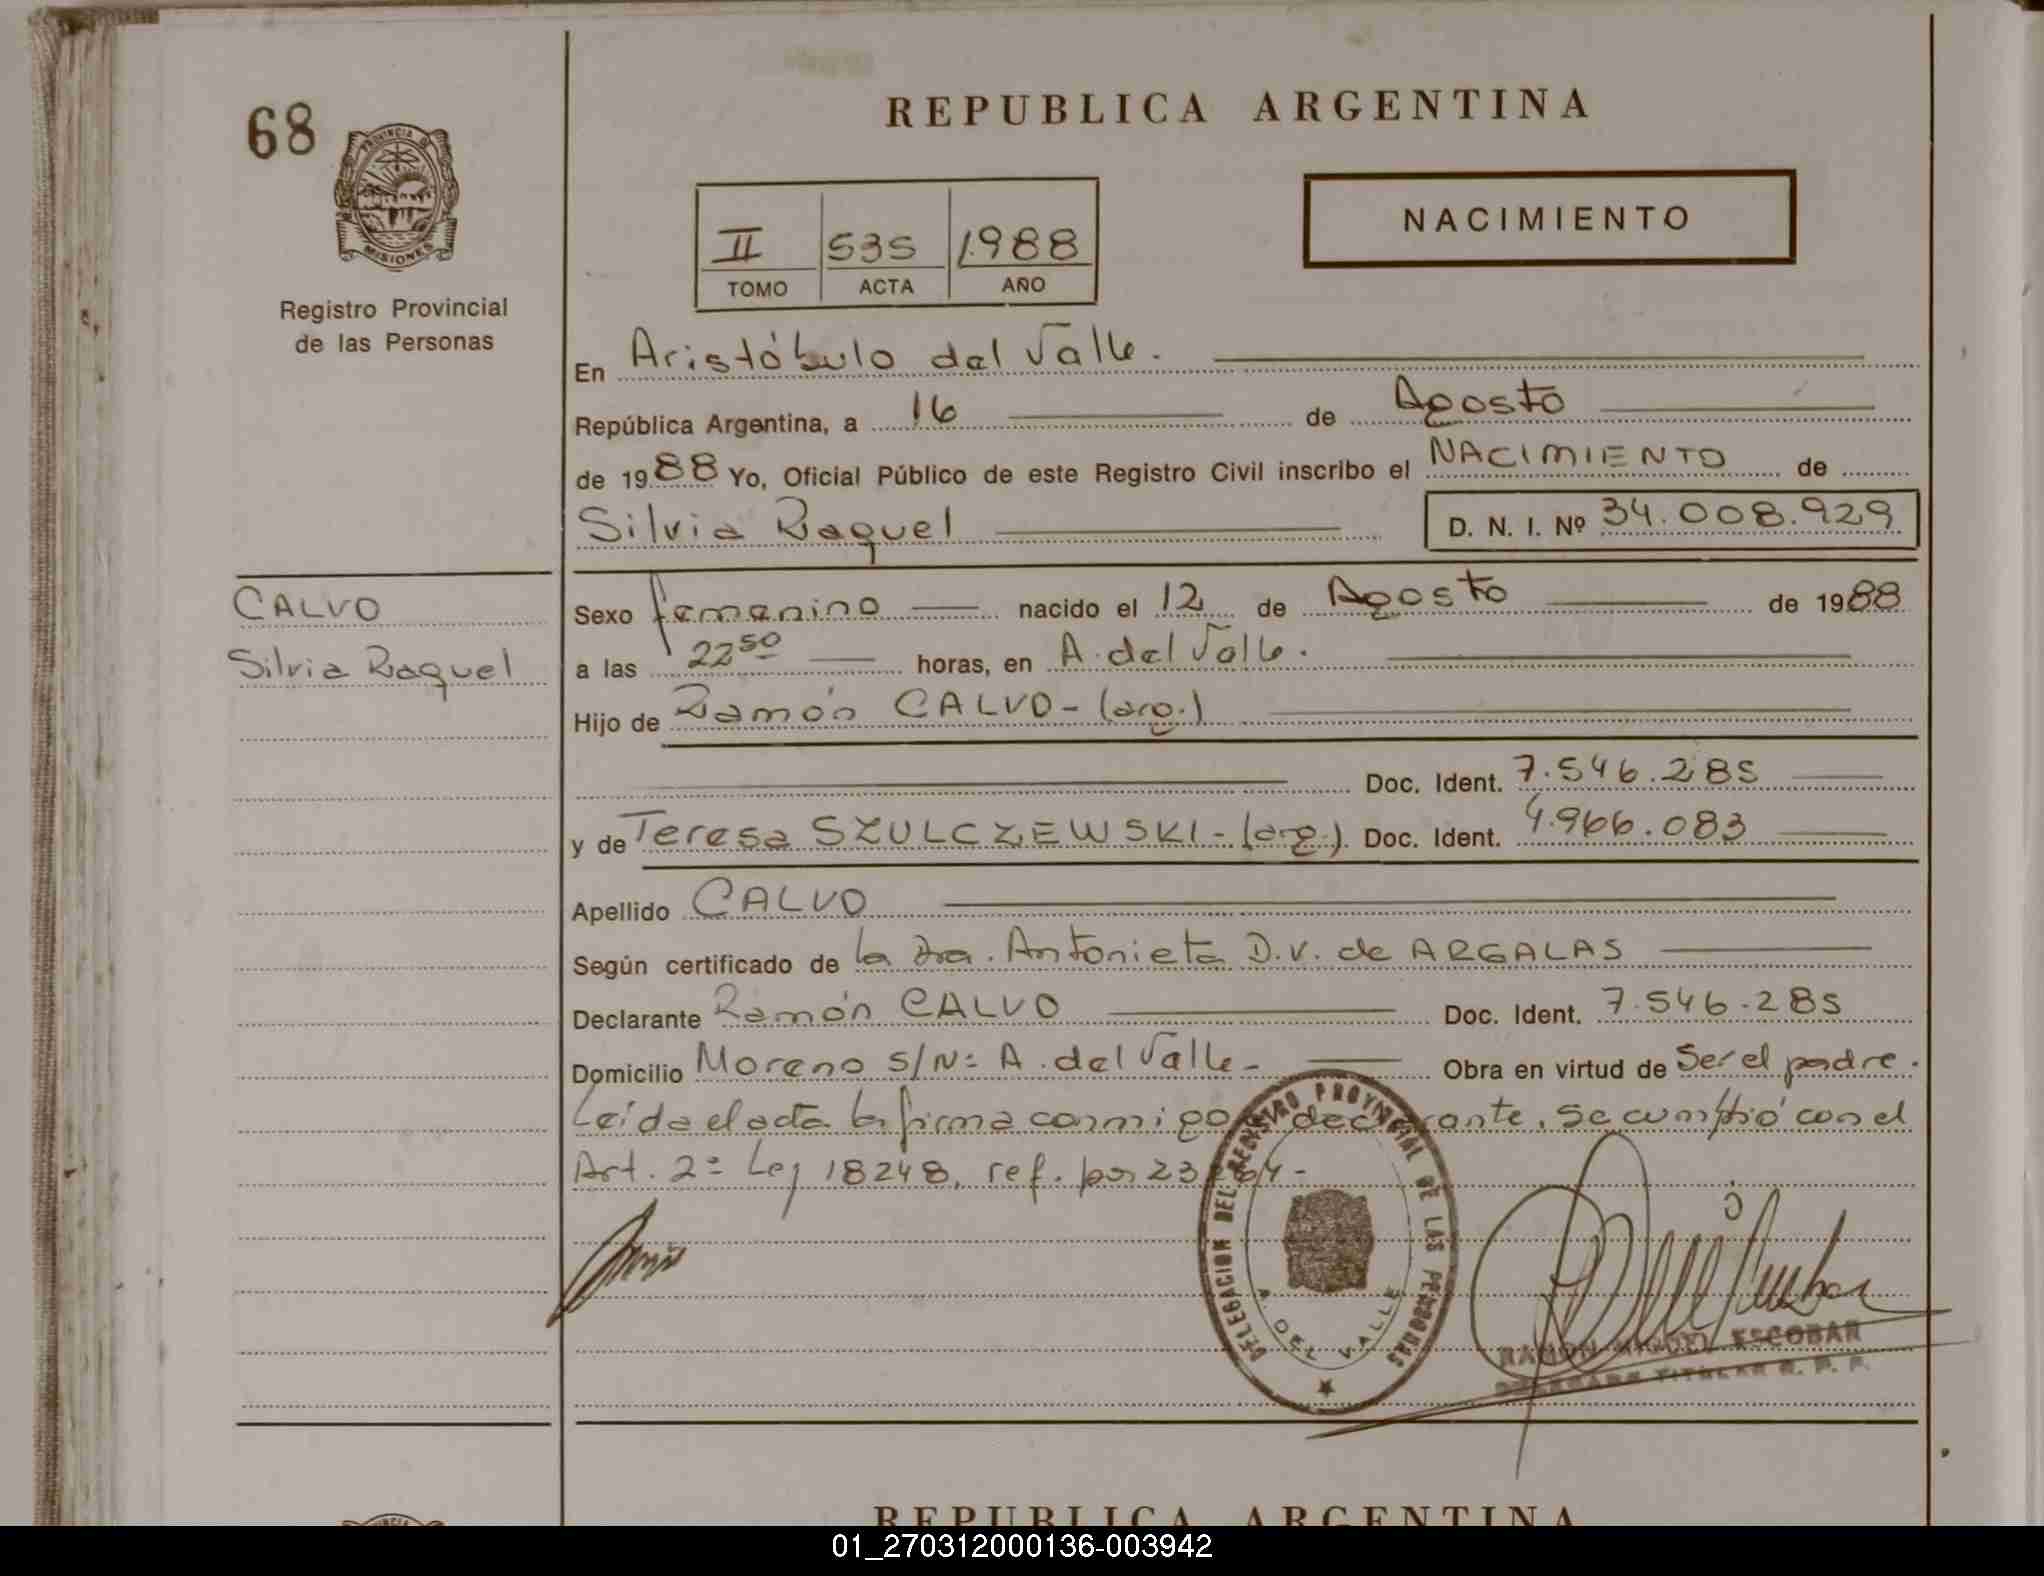 68
PROVINCIA D
MISIONES
Registro Provincial
de las Personas
REPUBLICA ARGENTINA
NACIMIENTO
II 535 1988
TOMO ACTA AÑO
En Aristóbulo del Valle.
República Argentina, a 16 de Agosto
de 1988 Yo, Oficial Público de este Registro Civil inscribo el NACIMIENTO de
Silvia Raquel D. N. I. Nº 34.008.929
CALVO
Silvia Raquel
Sexo femenino nacido el 12 de Agosto de 1988
a las 22 50 horas, en A. del Valle.
Hijo de Ramón CALVO - (arg.)
Doc. Ident. 7.546.285
y de Teresa SZULCZEWSKI - (arg.) Doc. Ident. 4.966.083
Apellido CALVO
Según certificado de la Dra. Antonieta D.V. de ARGALAS
Declarante Ramón CALVO Doc. Ident. 7.546.285
Domicilio Moreno s/Nº A. del Valle - Obra en virtud de Ser el padre.
Leída el acta la firma conmigo declarante, se cumplió con el
Art. 2º Ley 18248, ref. por
DELEGACION DEL REGISTRO PROVINCIAL DE LAS PERSONAS
A. DEL VALLE
RAMON MIGUEL ESCOBAR
TITULAR R. P. P.
REPUBLICA ARGENTINA
01_270312000136-003942